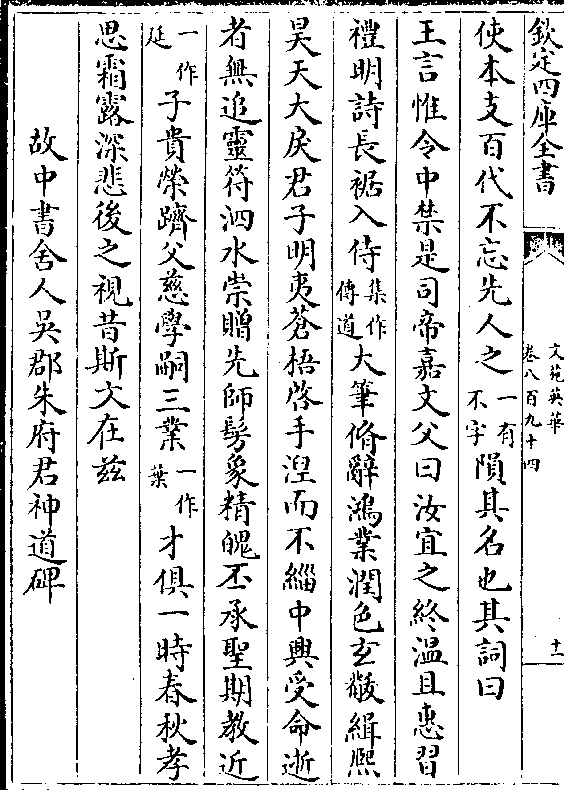 欽定四庫全書
文苑英華
卷八百九十四
十一
使本支百代不忘先人之一有不字隕其名也其詞曰
王言惟令中禁是司帝嘉文父曰汝宜之終溫且惠習
禮明詩長裾入侍集作傳道大筆脩辭鴻業潤色玄黻緝熙
昊天大戾君子明夷蒼梧啓手湼而不緇中興受命逝
者無追靈符泗水崇贈先師髣象精魄丕承聖期教近
一作延子貴榮躋父慈學嗣三業一作葉才俱一時春秋孝
思霜露深悲後之視昔斯文在兹
故中書舍人吳郡朱府君神道碑